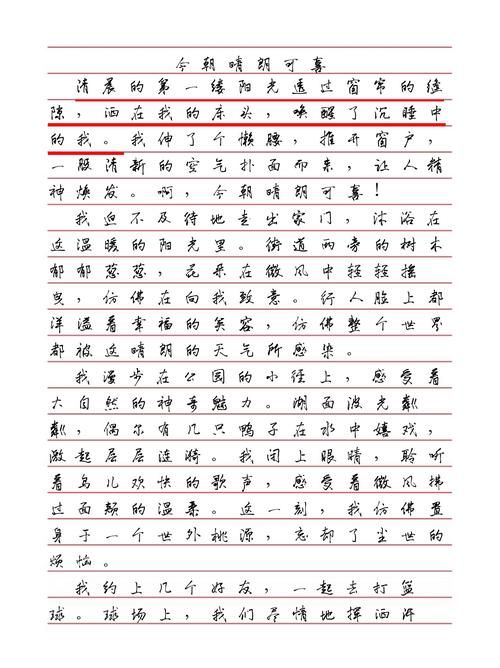 今朝晴朗可喜
清晨的第一缕阳光透过窗帘的缝
隙，洒在我的床头，唤醒了沉睡中
的我。我伸了个懒腰，推开窗户，
一股清新的空气扑面而来，让人精
神焕发。啊，今朝晴朗可喜！
我迫不及待地走出家门，沐浴在
这温暖的阳光里。街道两旁的树木
郁郁葱葱，花朵在微风中轻轻摇
曳，仿佛在向我致意。行人脸上都
洋溢着幸福的笑容，仿佛整个世界
都被这晴朗的天气所感染。
我漫步在公园的小径上，感受着
大自然的神奇魅力。湖面波光粼
粼，偶尔有几只鸭子在水中嬉戏，
激起层层涟漪。我闭上眼睛，聆听
着鸟儿欢快的歌声，感受着微风拂
过面颊的温柔。这一刻，我仿佛置
身于一个世外桃源，忘却了尘世的
烦恼。
我约上几个好友，一起去打篮
球。球场上，我们尽情地挥洒汗